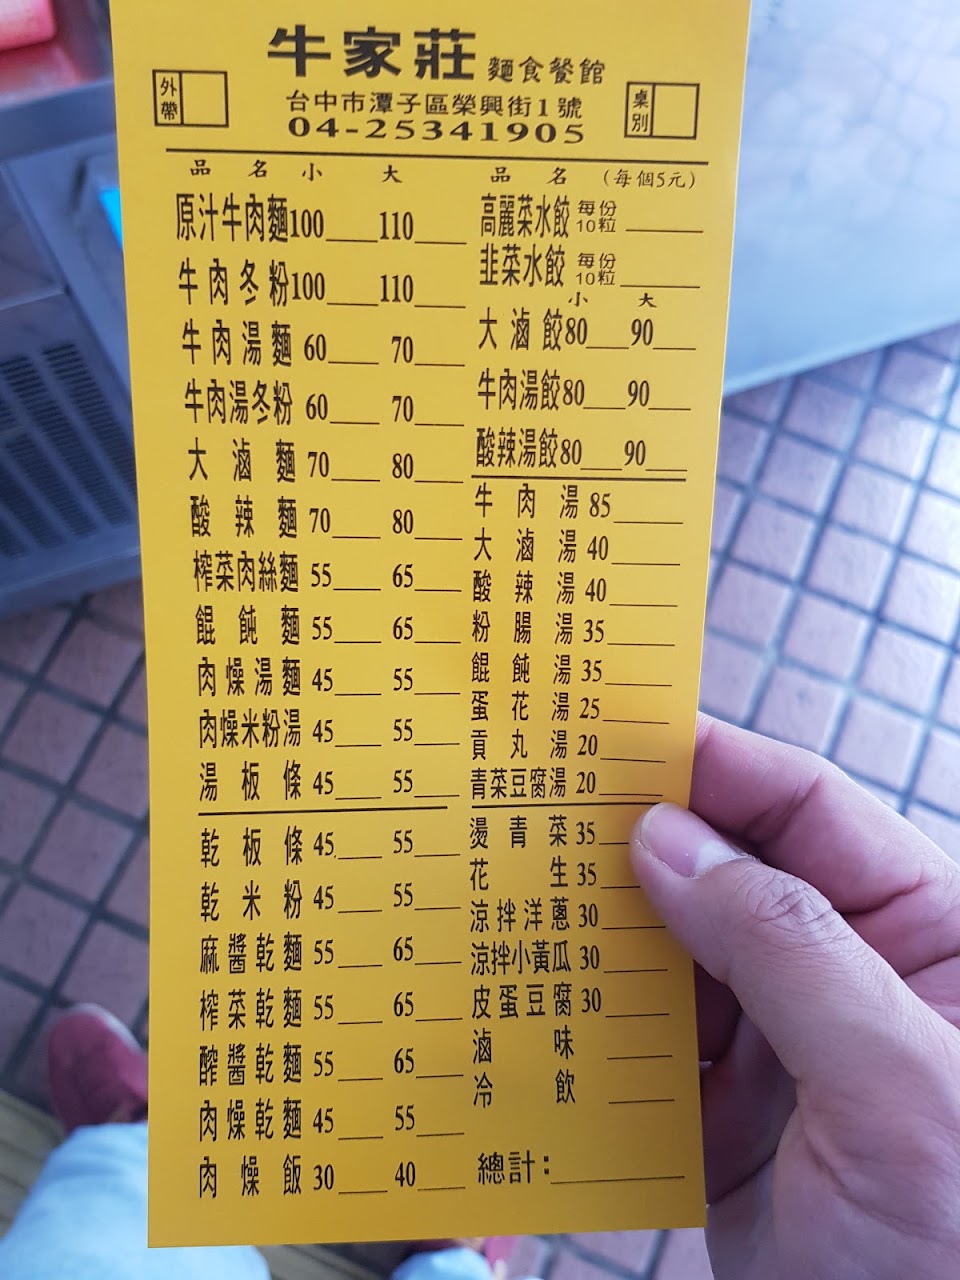 牛家莊 麵食餐館
外帶
桌別
台中市潭子區榮興街1號
04-25341905
品名 小 大
原汁牛肉麵100____110____
牛肉冬粉100____110____
牛肉湯麵 60____ 70____
牛肉湯冬粉 60____ 70____
大滷麵 70____ 80____
酸辣麵 70____ 80____
榨菜肉絲麵 55____ 65____
餛飩麵 55____ 65____
肉燥湯麵 45____ 55____
肉燥米粉湯 45____ 55____
湯板條 45____ 55____
乾板條 45____ 55____
乾米粉 45____ 55____
麻醬乾麵 55____ 65____
榨菜乾麵 55____ 65____
醡醬乾麵 55____ 65____
肉燥乾麵 45____ 55____
肉燥飯 30____ 40____
品名 (每個5元)
高麗菜水餃 每份10粒 ______
韭菜水餃 每份10粒 ______
小 大
大滷餃80____90____
牛肉湯餃80____90____
酸辣湯餃80____90____
牛肉湯 85______
大滷湯 40______
酸辣湯 40______
粉腸湯 35______
餛飩湯 35______
蛋花湯 25______
貢丸湯 20______
青菜豆腐湯 20______
燙青菜 35____
花生 35____
涼拌洋蔥 30______
涼拌小黃瓜 30______
皮蛋豆腐 30______
滷味 ______
冷飲 ______
總計：____________